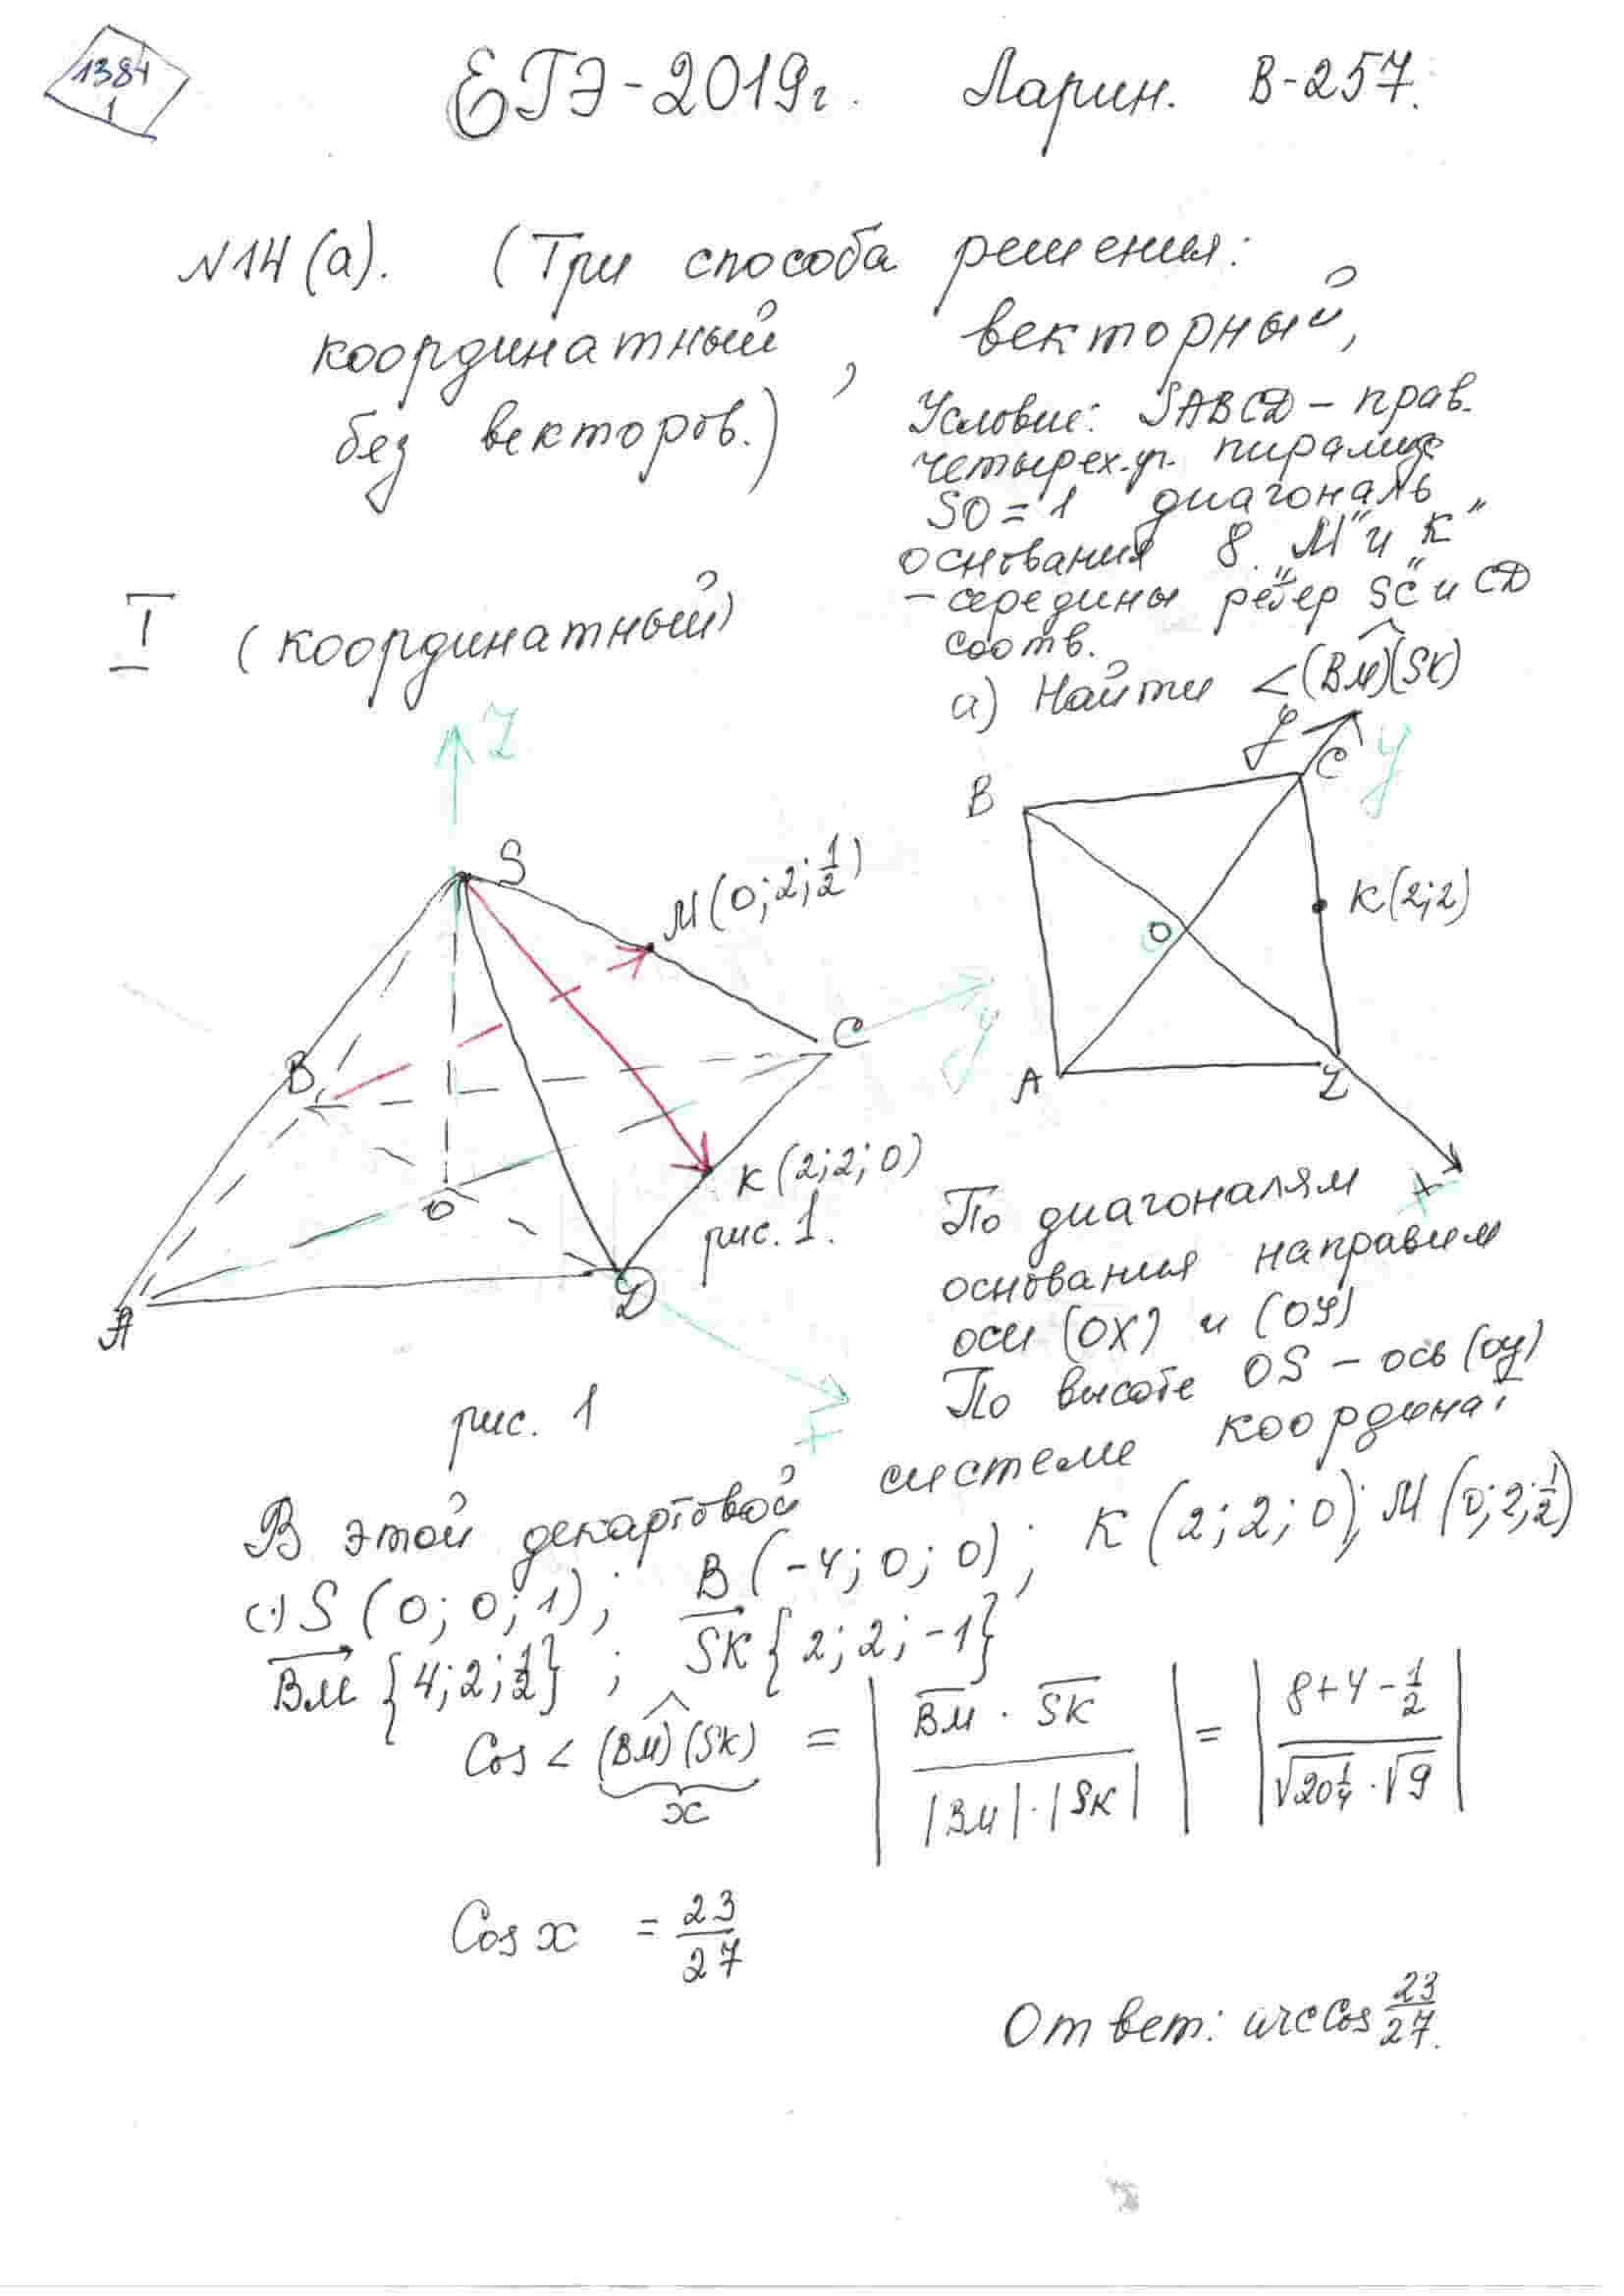 1384
1
ЕГЭ-2019г. Ларин. В-257.
N14(а). (Три способа решения:
координатный, векторный,
без векторов.)
Условие: SABCD – прав.
четырех.уг. пирамида
SO = 1 диагональ
основания 8. „М" и „К"
– середины ребер SC и CD
соотв.
а) Найти ∠(BM)(SK)
I (координатный)
Z
S
M(0;2;1/2)
B
C
y
O
K(2;2;0)
рис. 1.
A
D
x
рис. 1
y
y
B
C
K(2;2)
O
A
D
x
По диагоналям
основания направим
оси (OX) и (OY)
По высоте OS – ось (oy)
В этой декартовой системе координат
(·) S(0; 0; 1); B(-4; 0; 0); K(2; 2; 0); M(0; 2; 1/2)
BM {4; 2; 1/2}; SK {2; 2; -1}
Cos ∠ (BM)(SK) = | BM · SK / |BM| · |SK| | = | 8+4-1/2 / √20 1/4 · √9 |
x
Cos x = 23/27
Ответ: arccos 23/27.